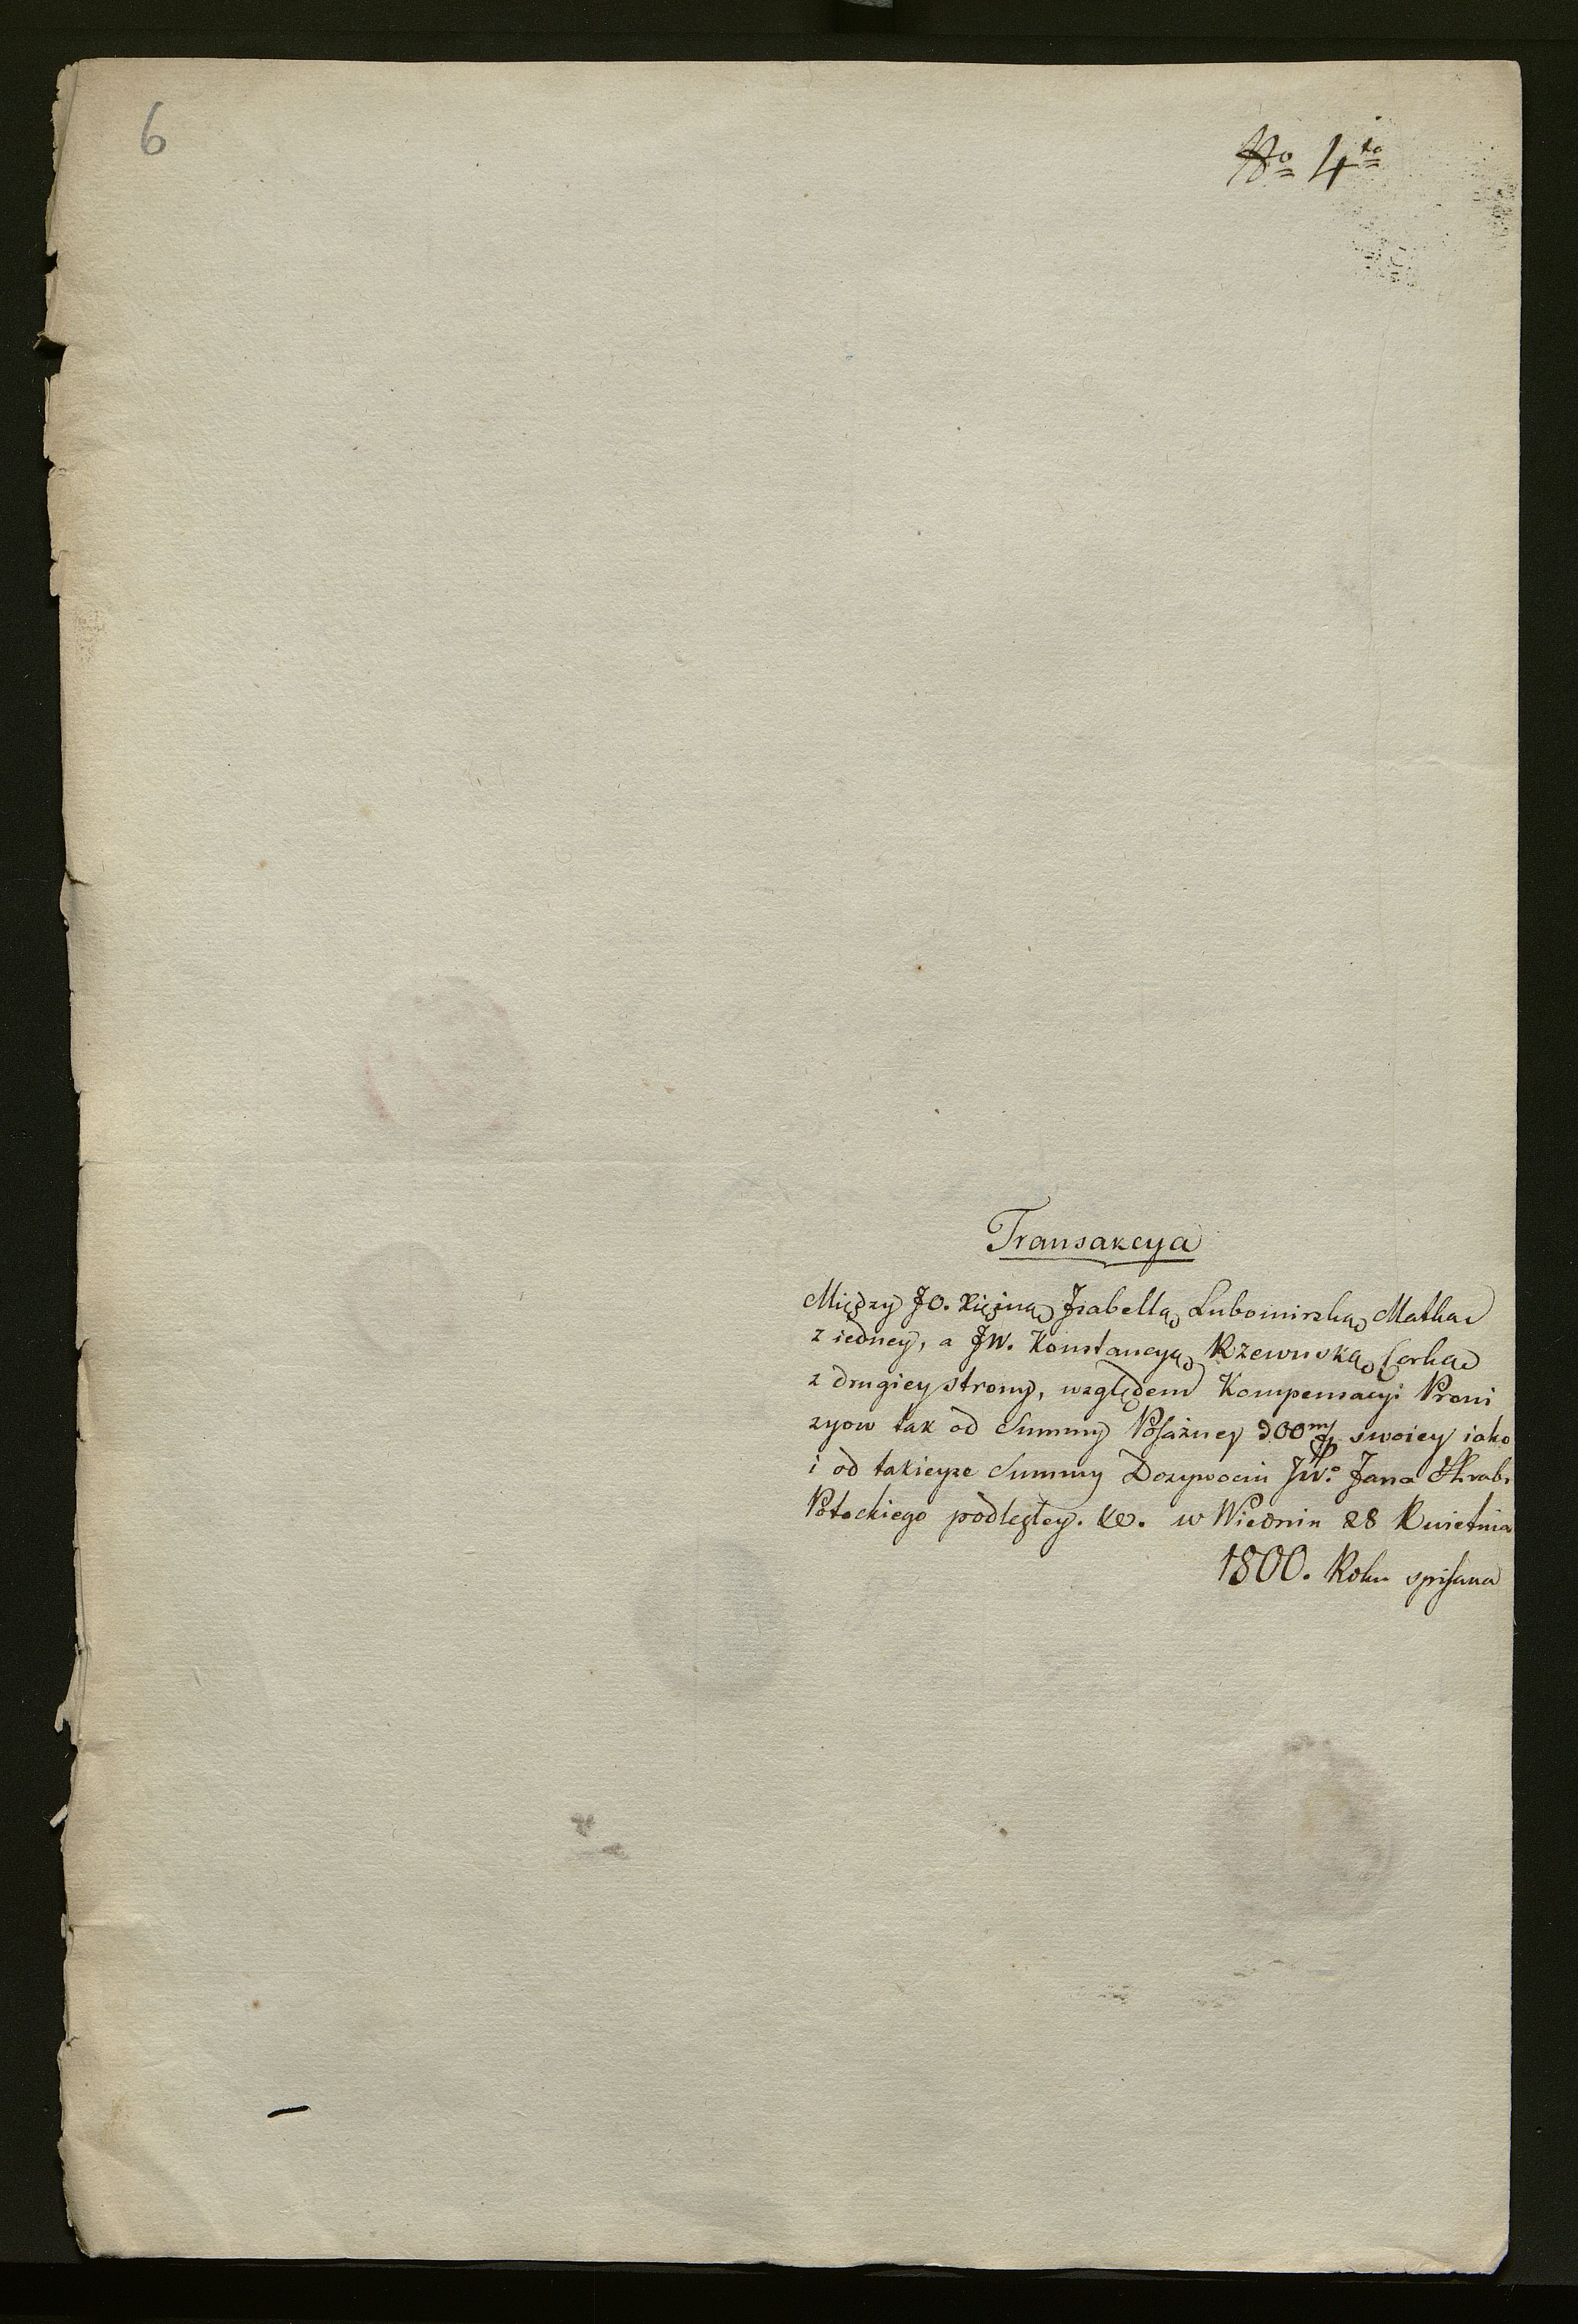 6
No 4to
Transakcya
Między JO. Xiężną Izabellą Lubomirską Matką
z iedney, a JW. Konstancyą Rzewuską Corką
z drugiey strony, względem Kompensacyi Prowi
zyow tak od Summy Posażney 900m swoiey iako
i od takieyze Summy Dozywociu JWo Jana Hrab.
Potockiego podległey. &c. w Wiedniu 28 Kwietnia
1800. Roku spisana